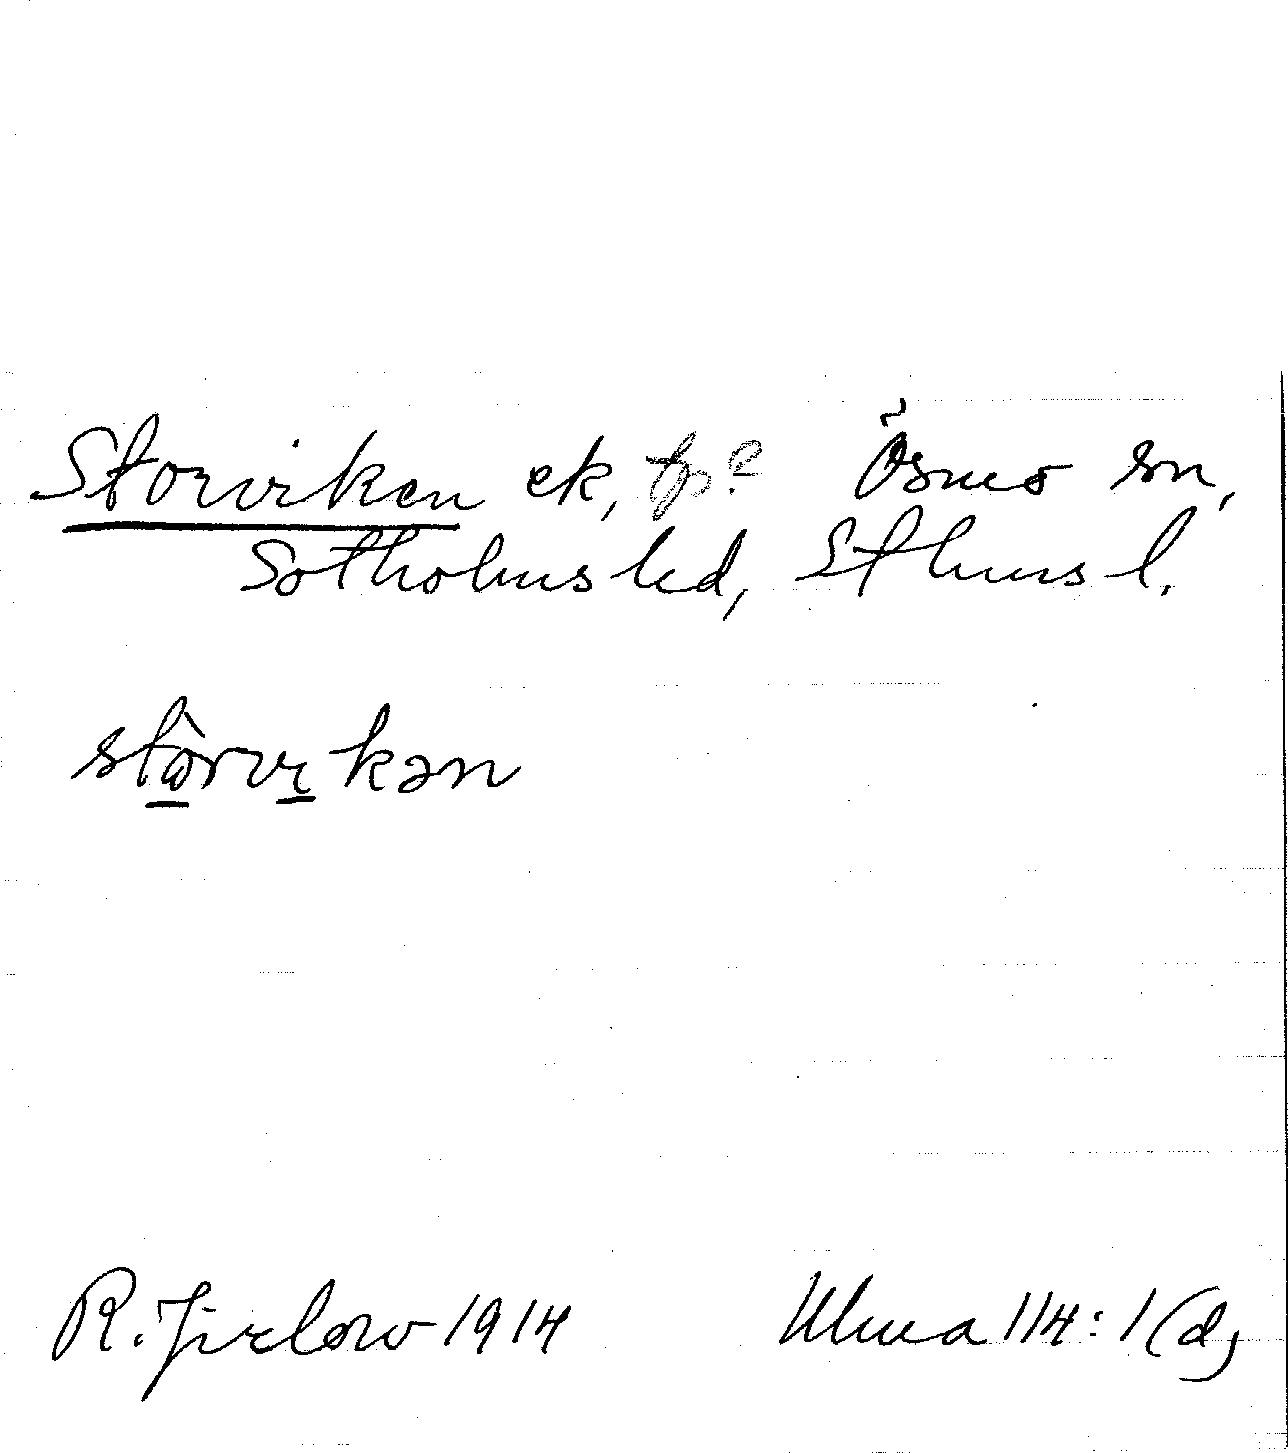 Storviken ek, tp? Ösmo sn,
Sotholms hd, Sthms l.
stòrvikən
R. Jirlow 1914 Uluua 114:1(d)